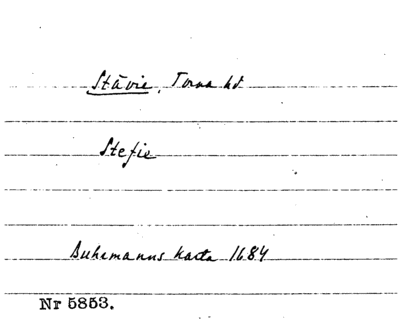 Stävie, Torna hd
Stefie
Buhrmanns karta 1684
Nr 5853.